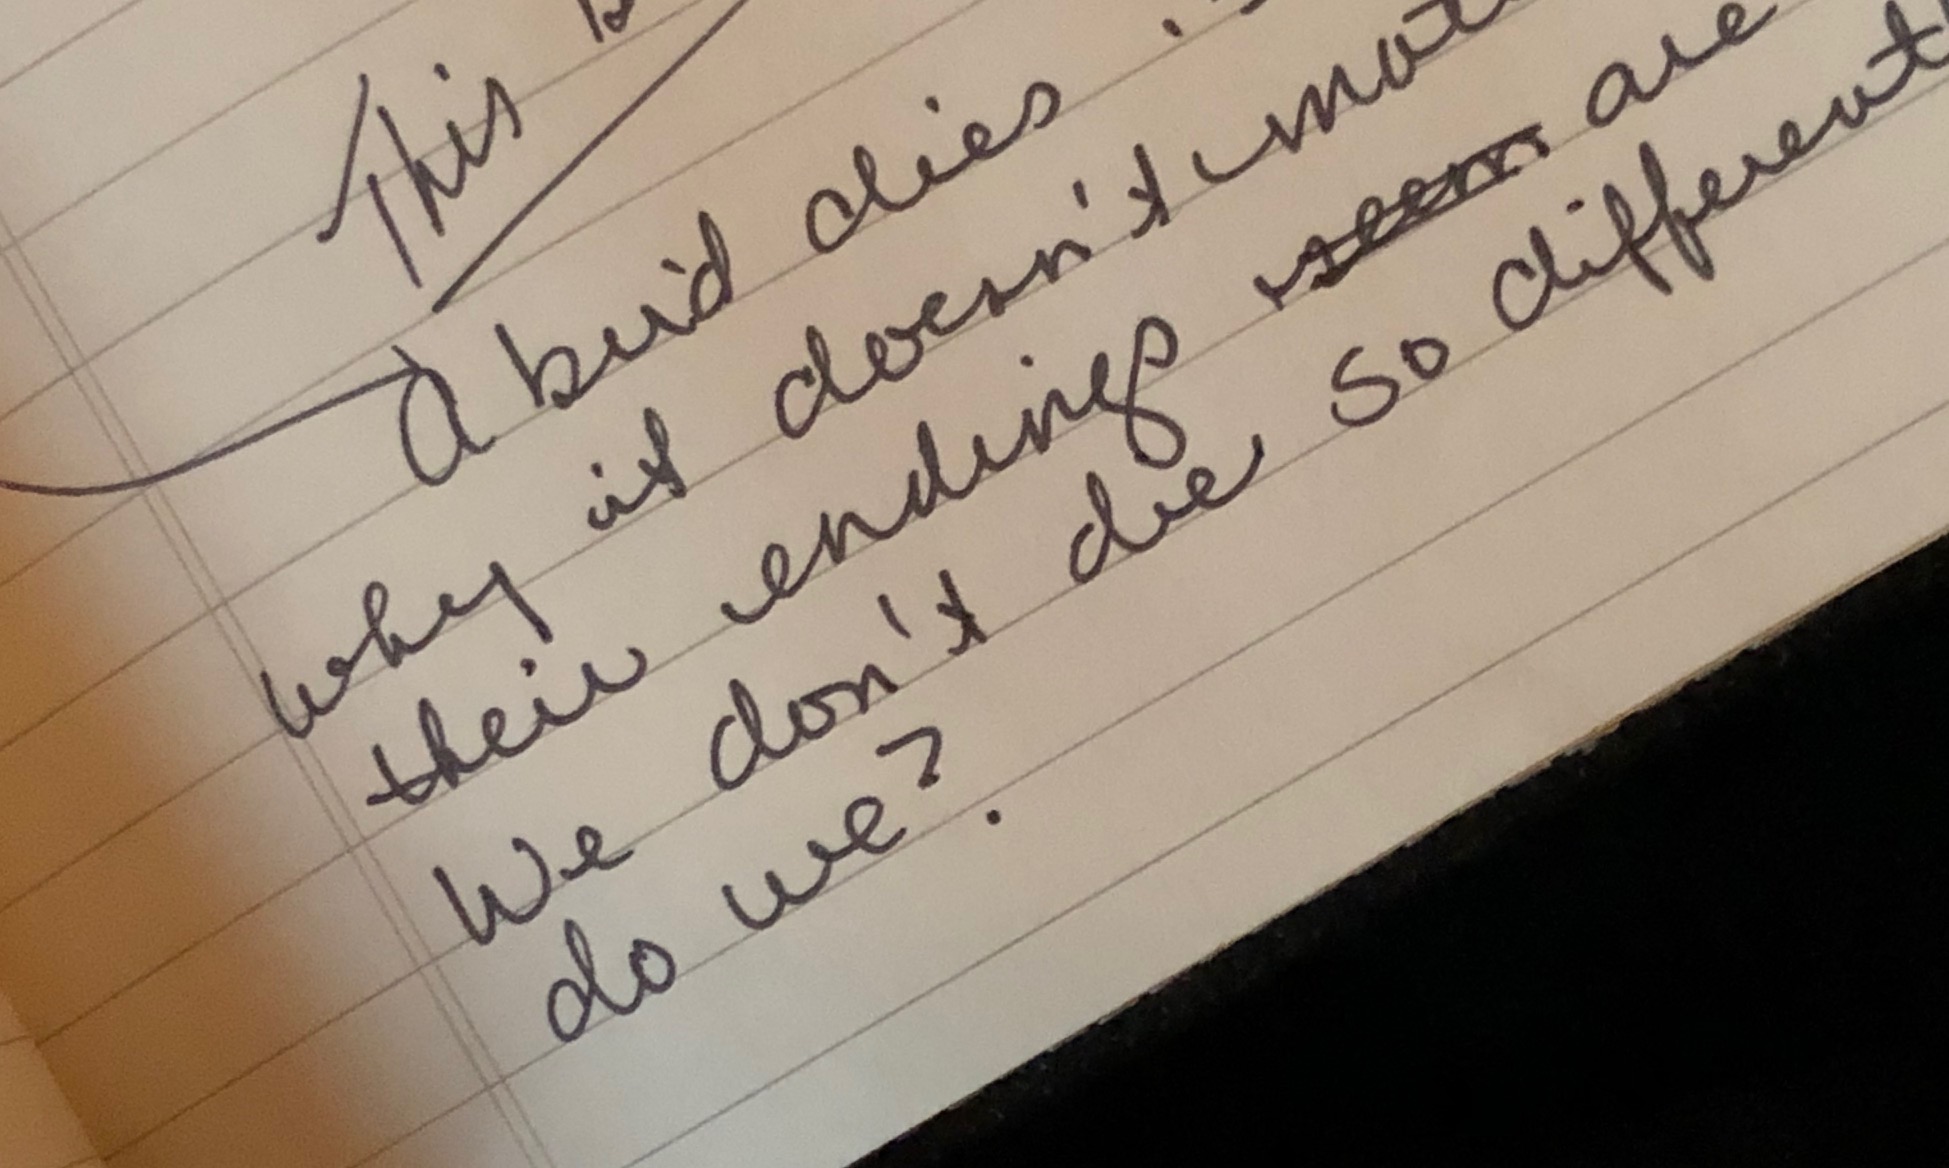 This
A bird dies
why it doesn't
their endings ~~seem~~ are
We don't die, so different
do we?